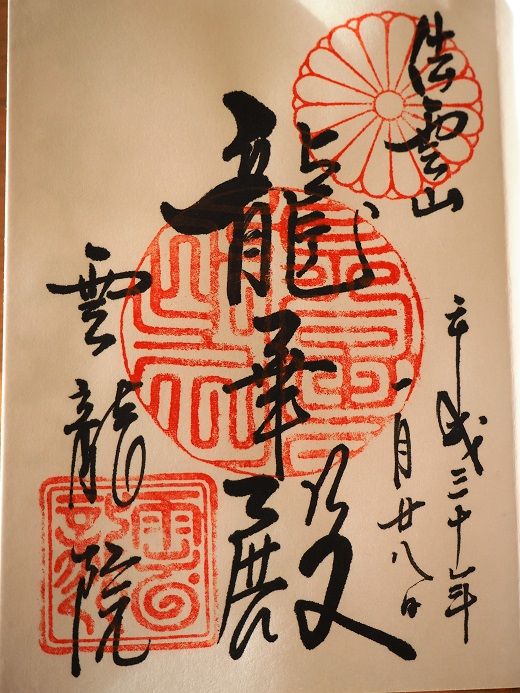 法雲山
平成三十年
一月廿八日
龍華殿
雲龍院